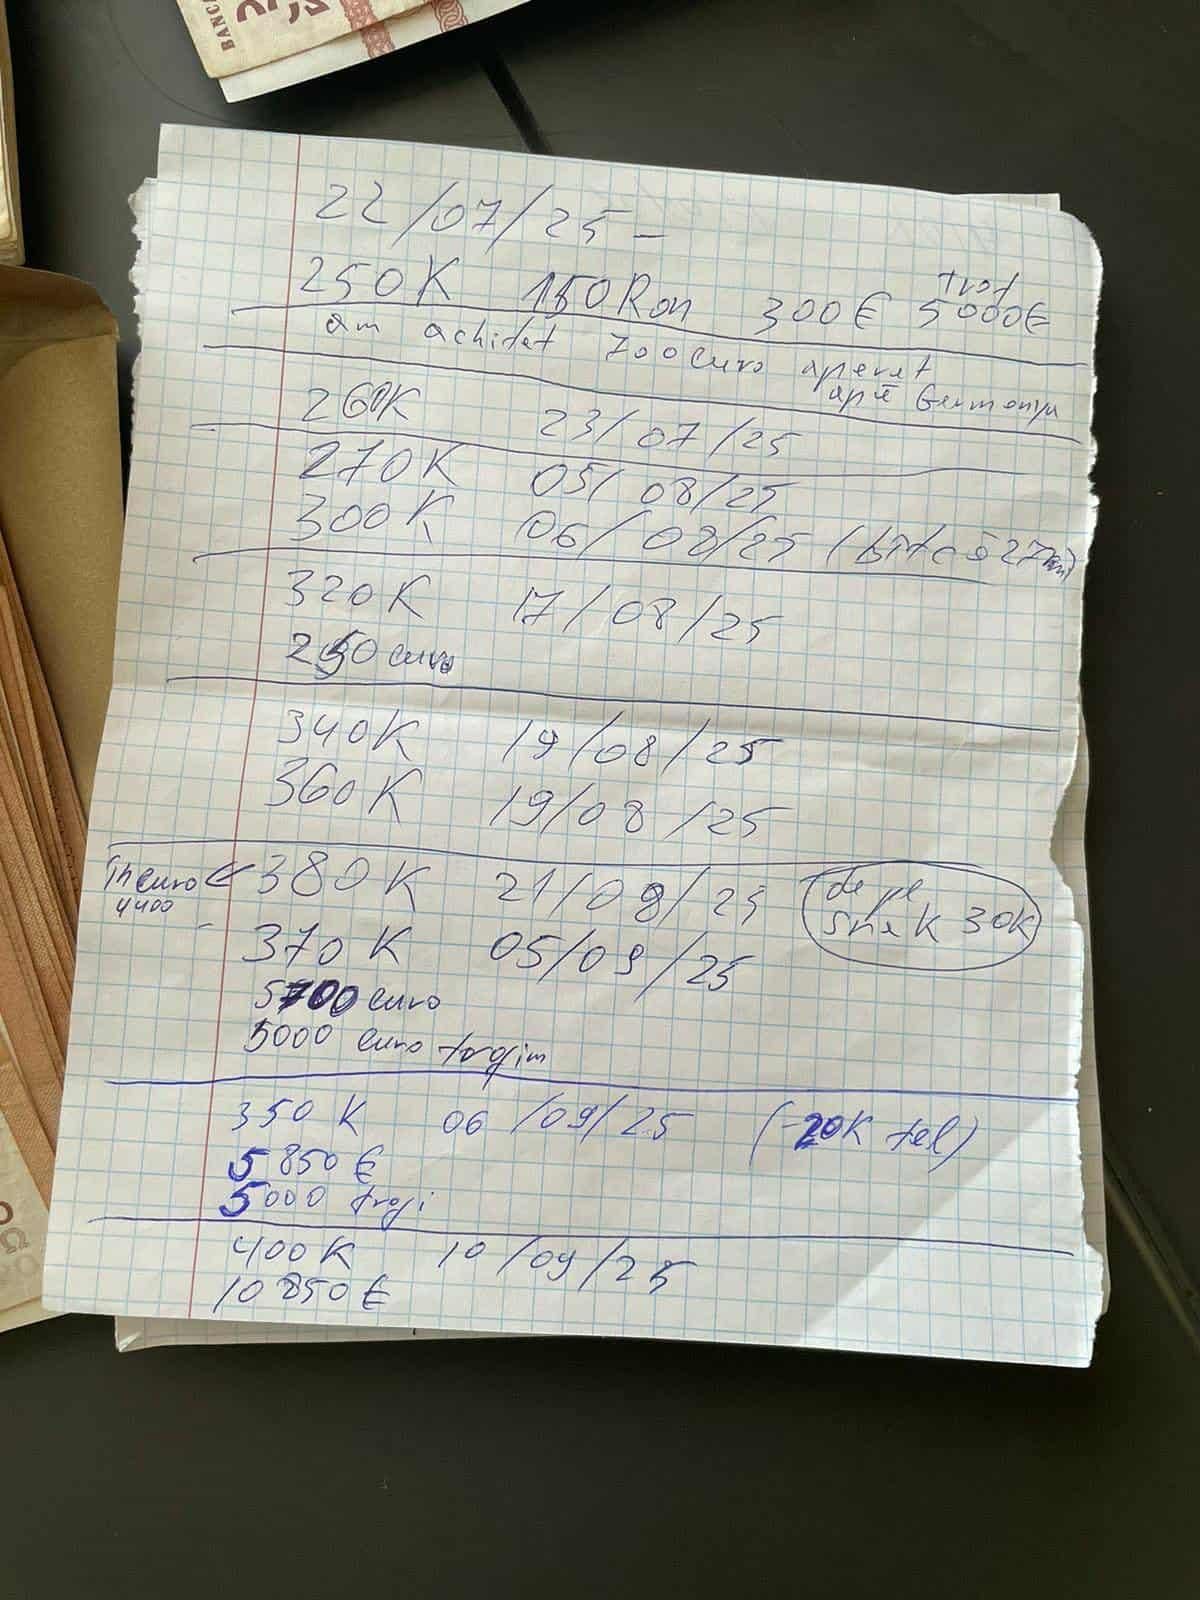 BANCA
22/07/25 -
250K 150Ron 300€ 5000€
am achitat 700 euro aparat
apă Germania
260K 23/07/25
270K 05/08/25
300K 06/08/25
320K 17/08/25
250 euro
340K 19/08/25
360K 19/08/25
în euro 380K 21/08/25 de pe
4400 snek 30K
370K 05/09/25
5700 euro
5000 euro trojim
350K 06/09/25 (-20K tel)
5850€
5000 troji
400K 10/09/25
10850€